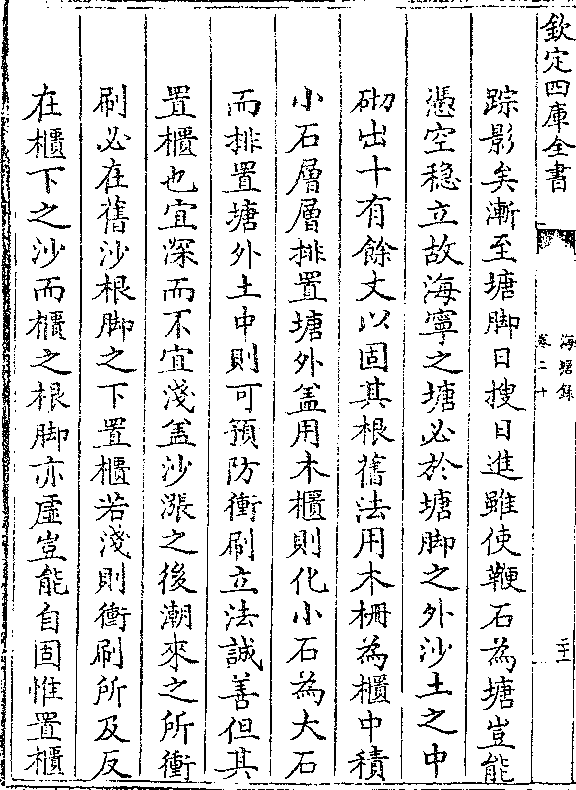 欽定四庫全書
海塘錄
卷二十
二十一
踪影矣漸至塘脚日搜日進雖使鞭石為塘豈能
憑空穏立故海寧之塘必於塘脚之外沙土之中
砌出十有餘丈以固其根舊法用木柵為櫃中積
小石層層排置塘外盖用木櫃則化小石為大石
而排置塘外土中則可預防衝刷立法誠善但其
置櫃也宜深而不宜淺盖沙漲之後潮來之所衝
刷必在舊沙根脚之下置櫃若淺則衝刷所及反
在櫃下之沙而櫃之根脚亦虛豈能自固惟置櫃